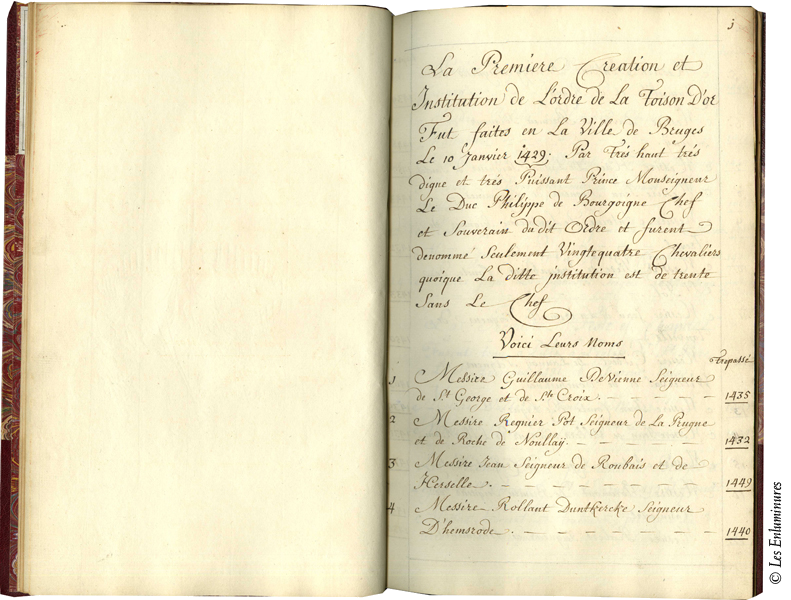 j
La Premiere Creation et
Institution de L'ordre de La Toison D'or
Fut faites en La Ville de Bruges
Le 10 Janvier 1429; Par Trés haut trés
digne et trés Puissant Prince Monseigneur
Le Duc Philippe de Bourgoigne Chef
et Souverain du dit Ordre et furent
denommé Seulement Vingtequatre Chevaliers
quoique La ditte jnstitution est de trente
Sans Le Chef
Voici Leurs Noms
Trepassé
1 Messire Guillaume De Vienne Seigneur
de St. George et de Ste Croix. 1435
2 Messire Regnier Pot Seigneur de La Prugne
et de Roche de Noullay. 1432
3 Messire Jean Seigneur de Roubais et de
Herselle. 1449
4 Messire Rollant Duntkircke Seigneur
D'hemsrode. 1440
© Les Enluminures